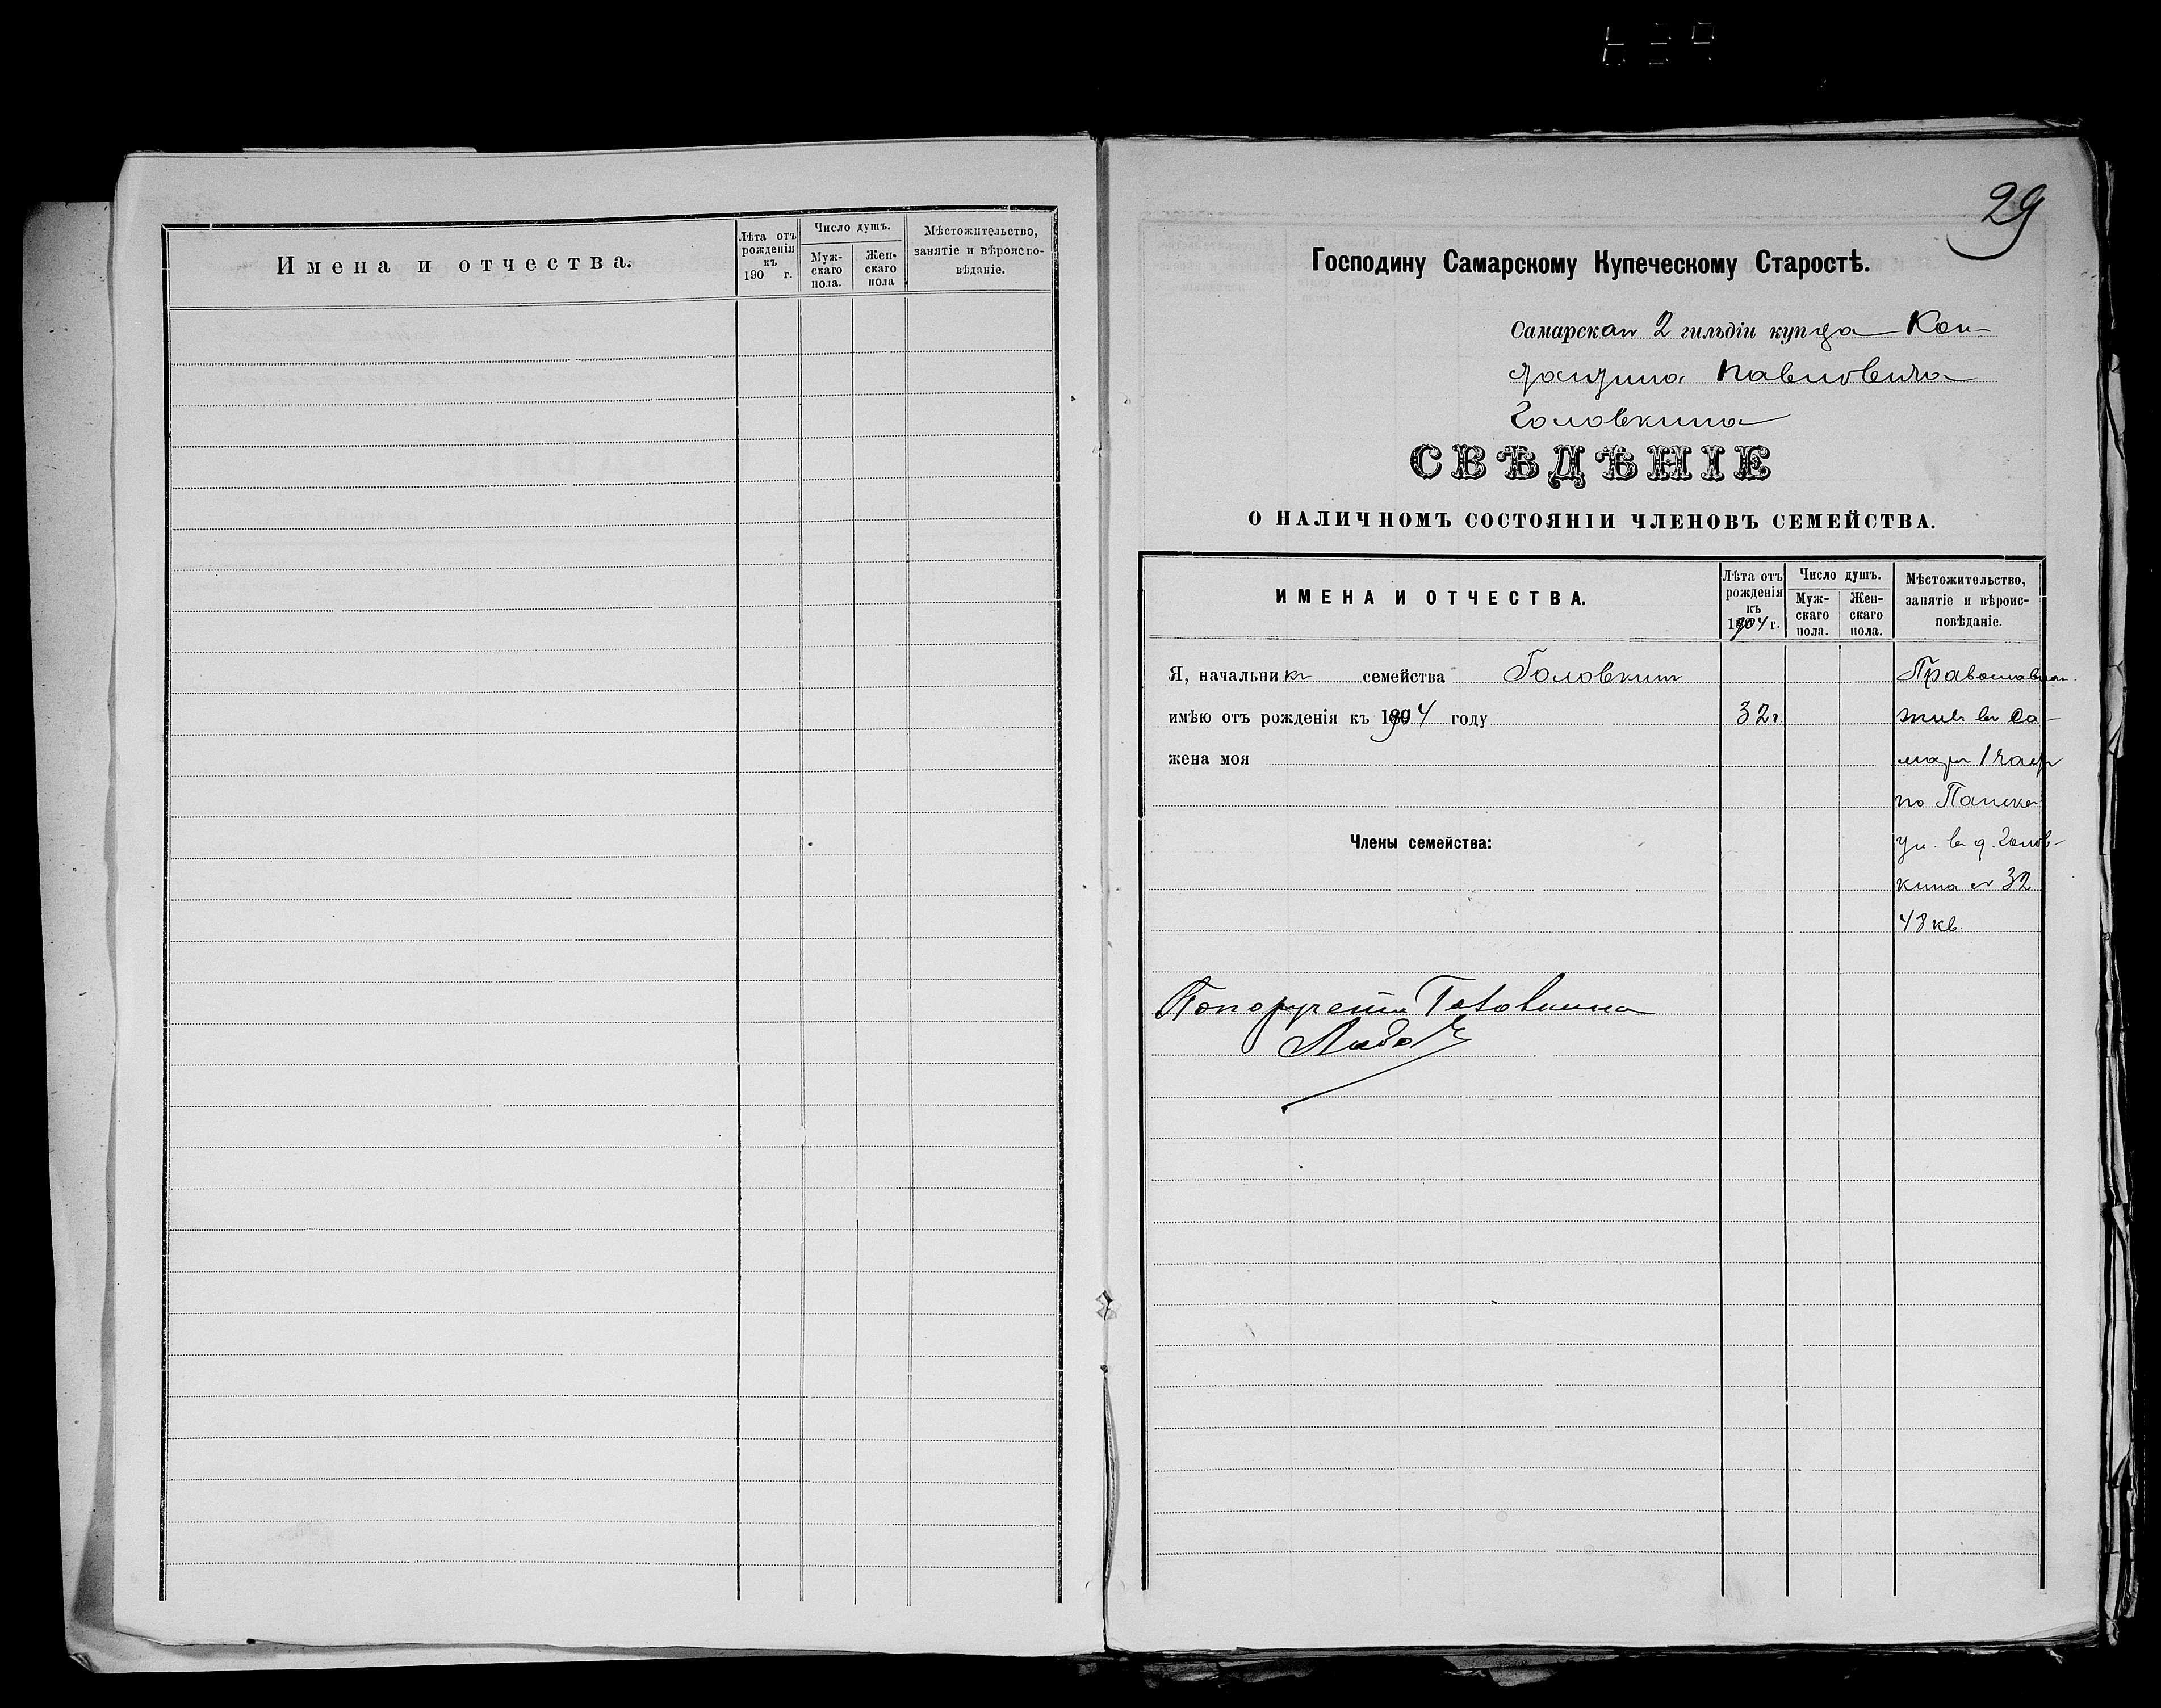 Имена и отчества.
Лѣта отъ рожденія къ 190 г.
Число душъ.
Муж-скаго пола.
Жен-скаго пола
Мѣстожительство, занятіе и вѣроиспо-вѣданіе.
29
Господину Самарскому Купеческому Старостѣ.
Самарскаго 2 гильдіи купца Кон-
стантина Павловича
Головкина
СВѢДѢНІЕ
О НАЛИЧНОМЪ СОСТОЯНІИ ЧЛЕНОВЪ СЕМЕЙСТВА.
ИМЕНА И ОТЧЕСТВА.
Лѣта отъ рожденія къ 1904 г.
Число душъ.
Муж-скаго пола.
Жен-скаго пола.
Мѣстожительство, занятіе и вѣроис-повѣданіе.
Я, начальникъ семейства Головкинъ Православнаго
имѣю отъ рожденія къ 1904 году 32 г. жив. въ Са-
жена моя марѣ 1 части
по Панской
Члены семейства: ул. въ д. Голов-
кина № 32
48 кв.
По порученію Головкина